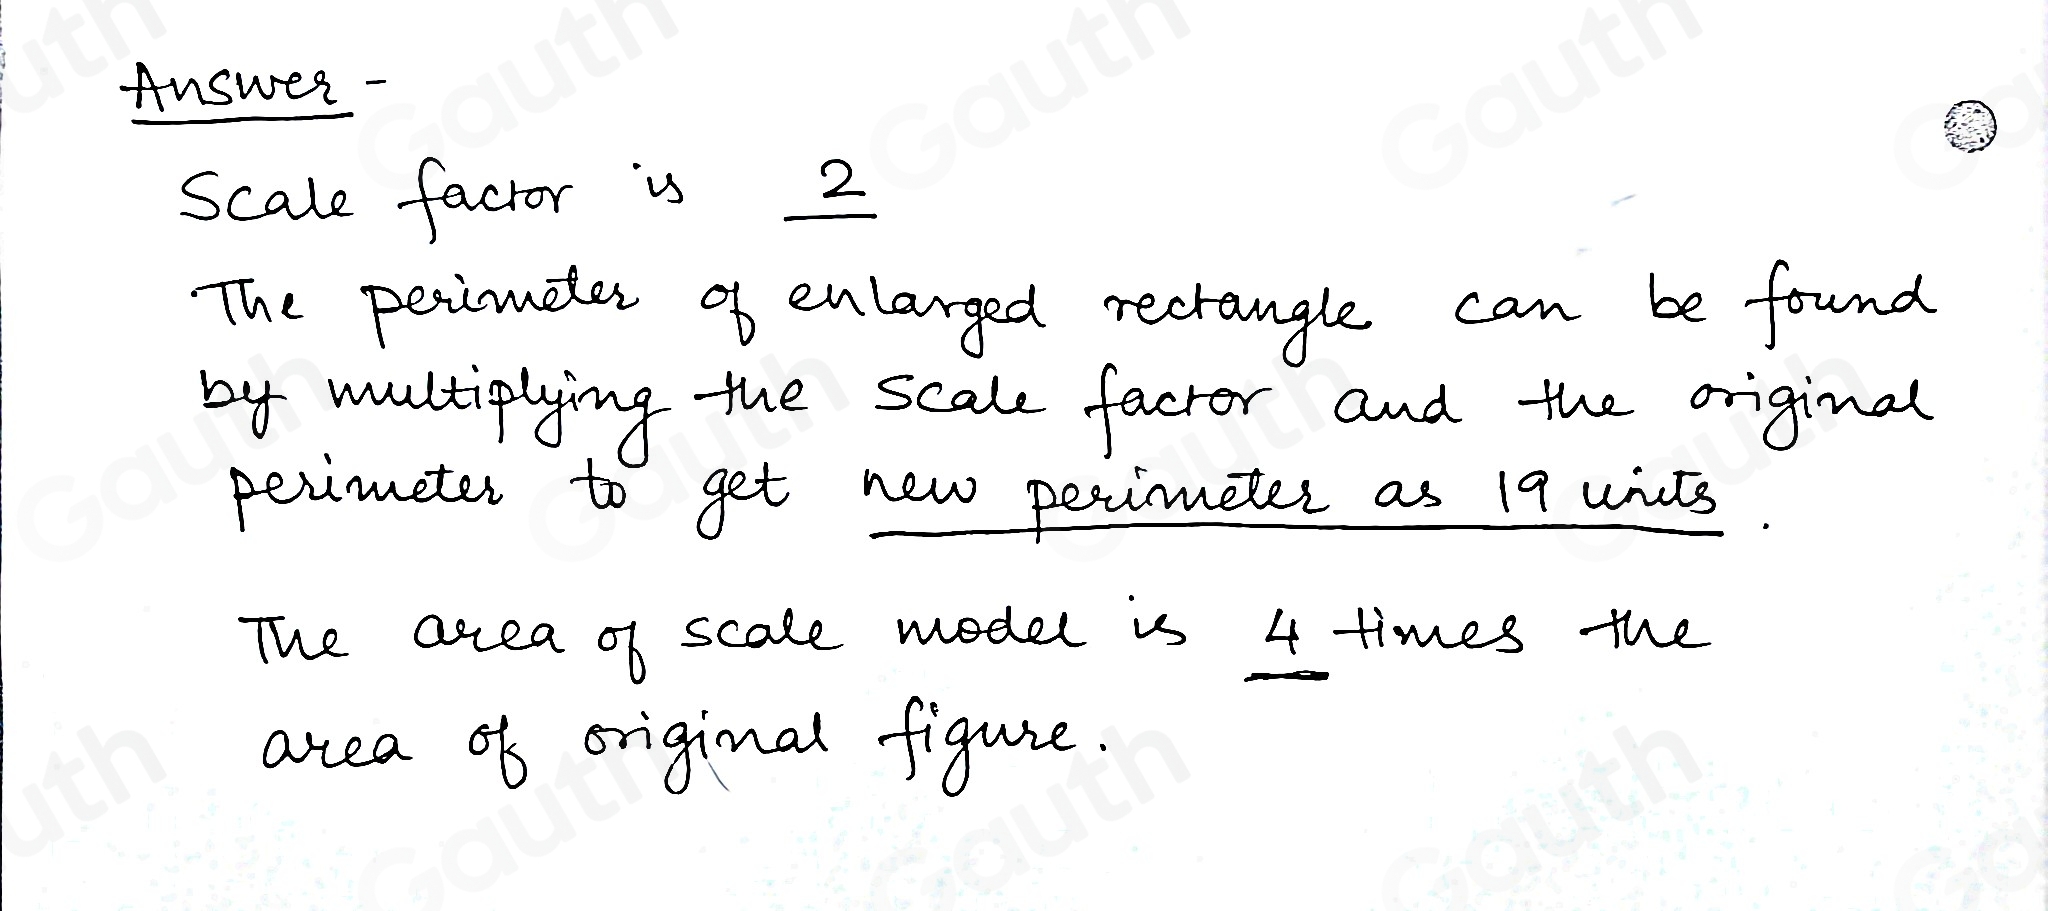 Answer -
Scale factor is 2
The perimeter of enlarged rectangle can be found
by multiplying the scale factor and the original
perimeter to get new perimeter as 19 units.
The area of scale model is 4 times the
area of original figure.